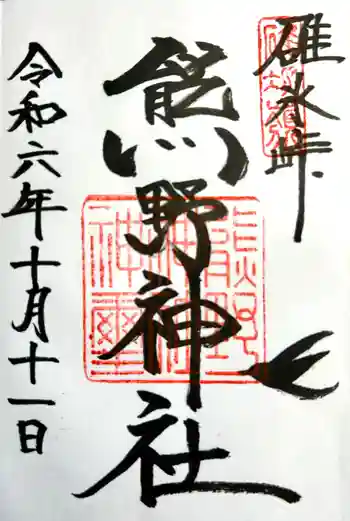 碓氷峠
熊野神社
令和六年十月十一日